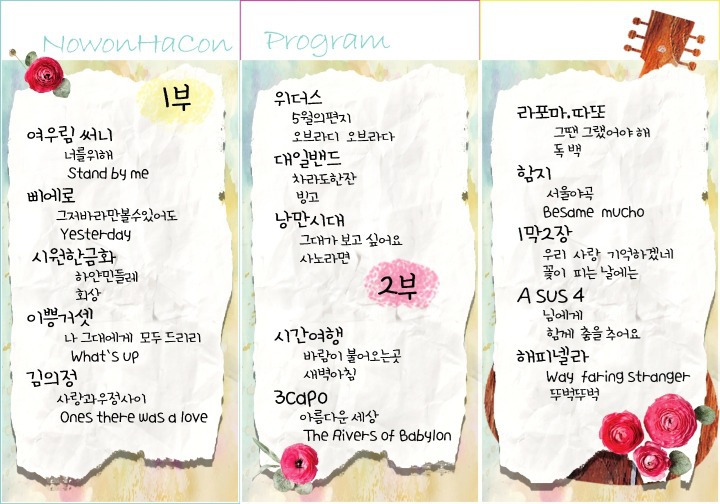 NowonHaCon Program
1부
여우림 써니
너를위해
Stand by me
삐에로
그저바라만볼수있어도
Yesterday
시원한금화
하얀민들레
화상
이쁭거셋
나 그대에게 모두 드리리
What's up
김의정
사랑과우정사이
Ones there was a love
위더스
5월의편지
오브라디 오브라다
대일밴드
차라도한잔
빙고
낭만시대
그대가 보고 싶어요
사노라면
2부
시간여행
바람이 불어오는곳
새벽아침
3capo
아름다운 세상
The Rivers of Babylon
라포마.따또
그땐 그랬어야 해
독백
함지
서울야곡
Besame mucho
1막2장
우리 사랑 기억하겠네
꽃이 피는 날에는
A SUS 4
님에게
함께 춤을 추어요
해피넬라
Way faring stranger
뚜벅뚜벅